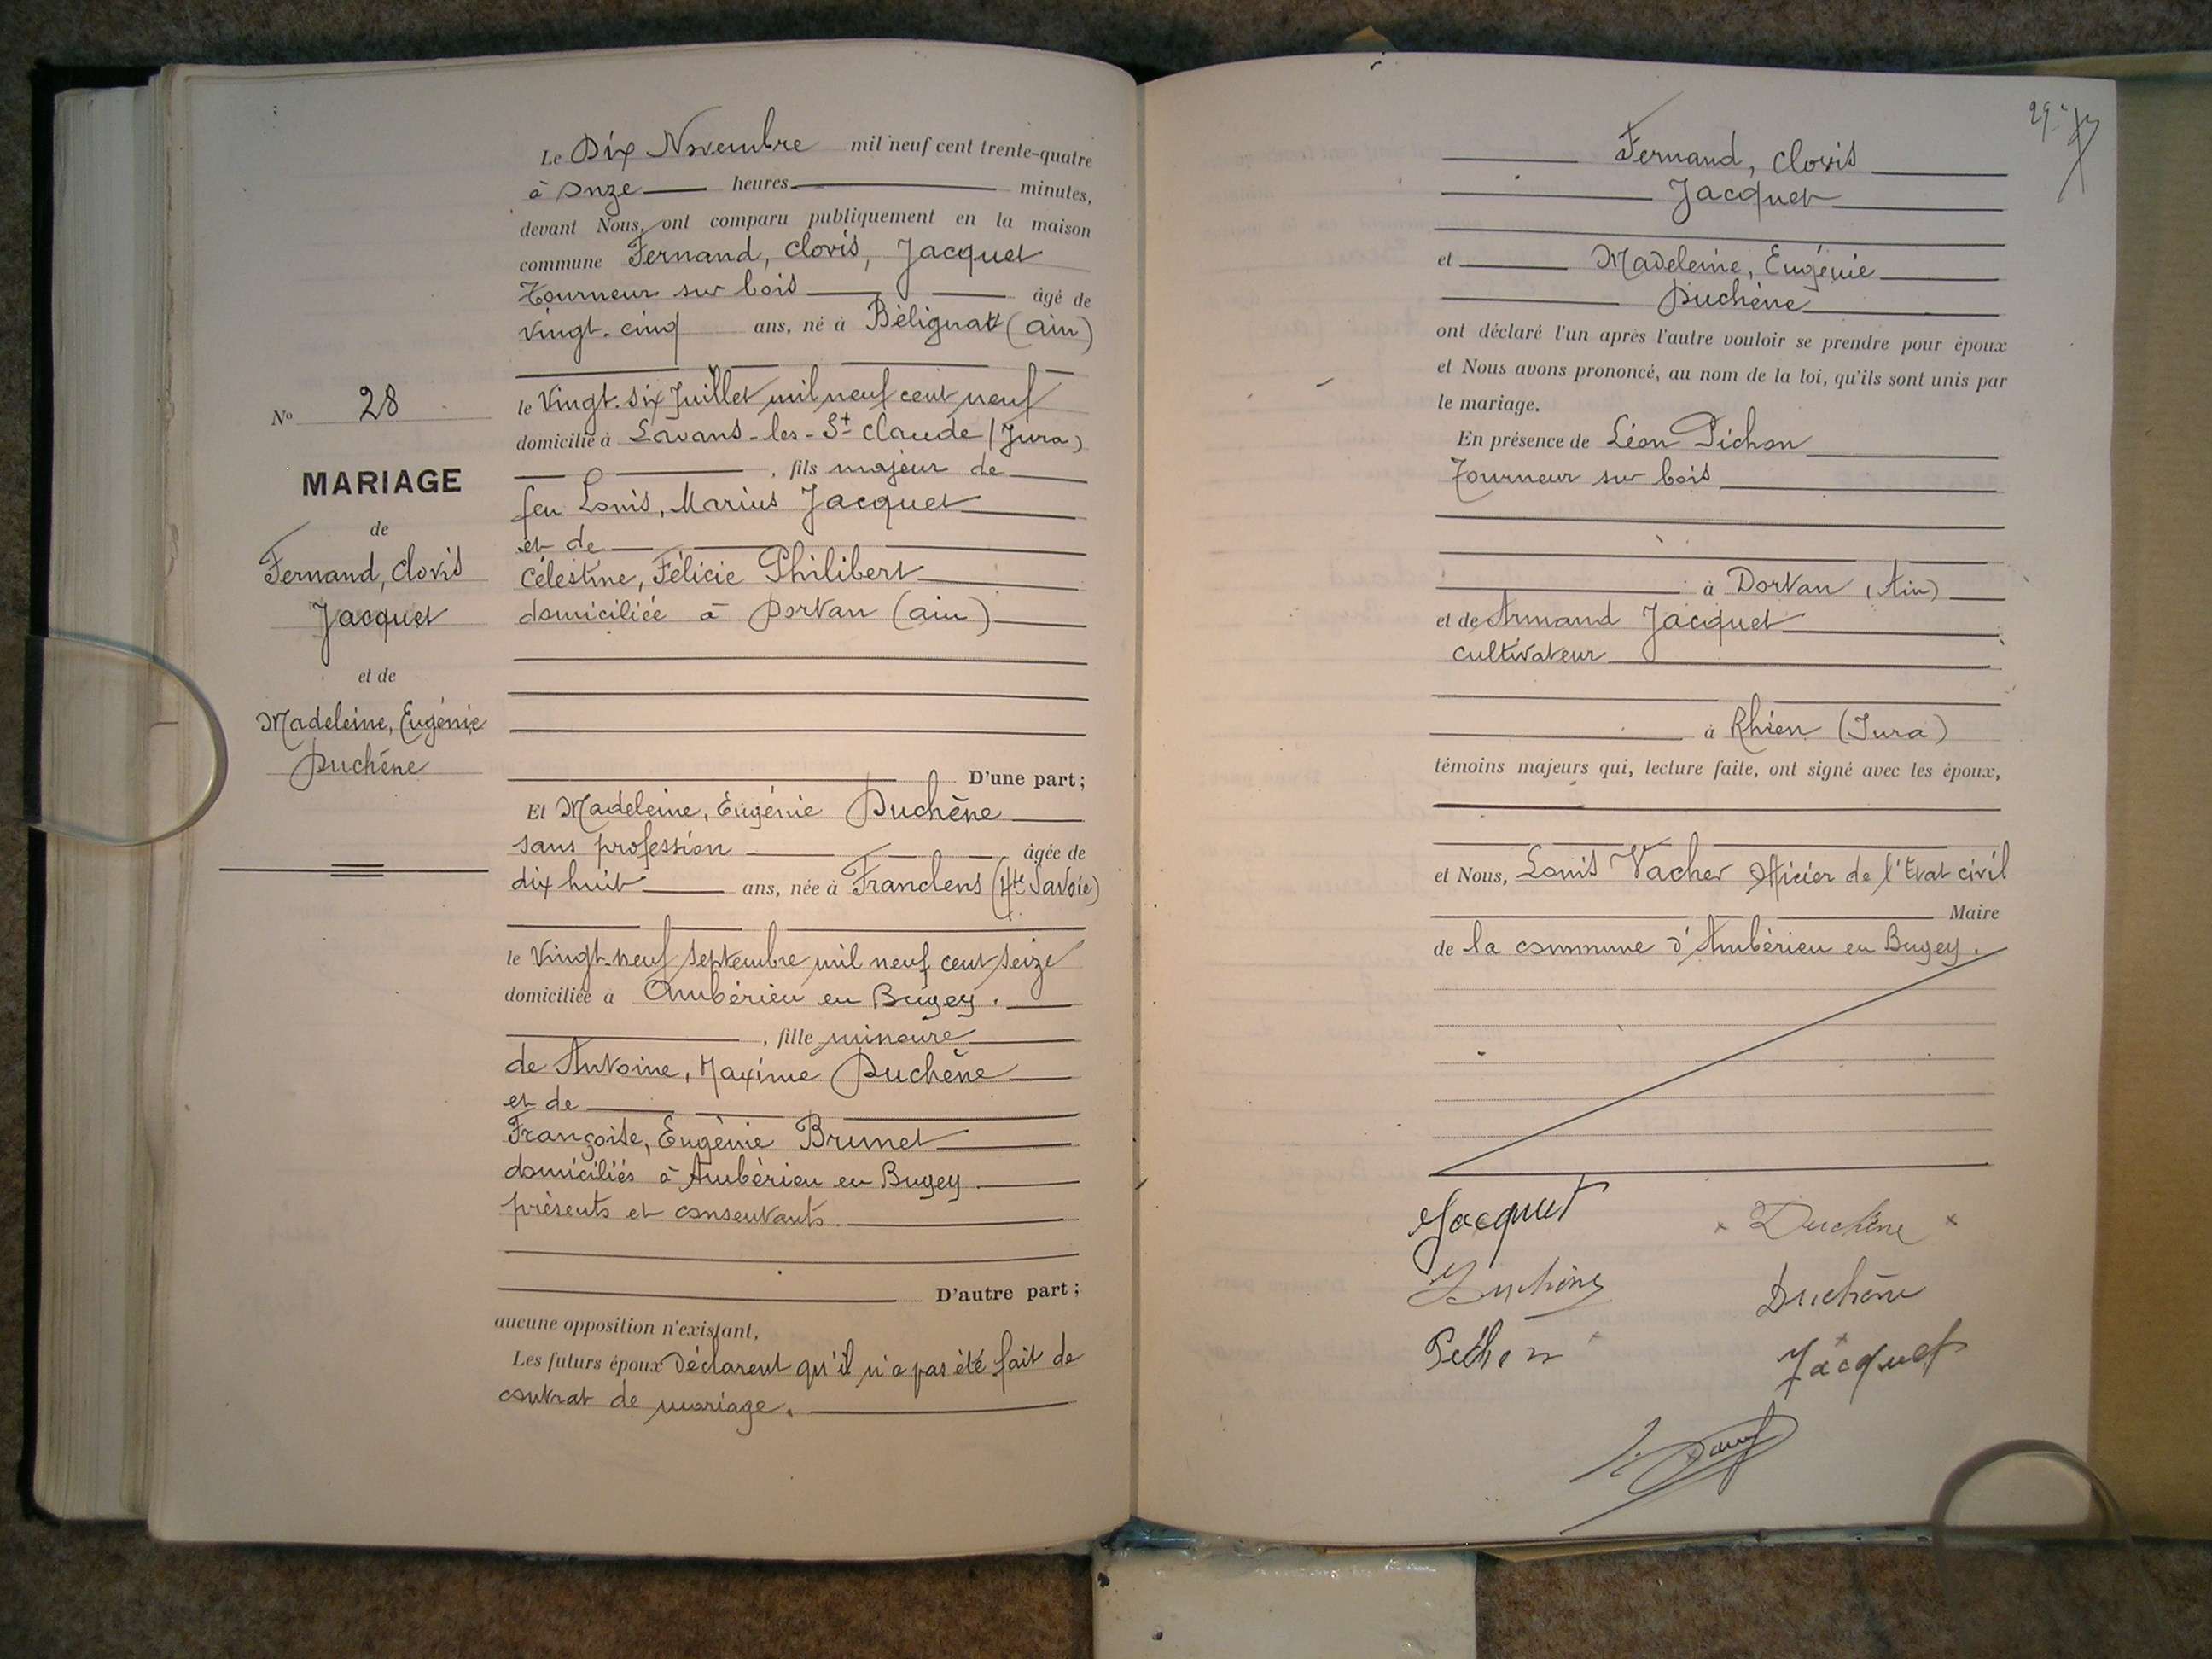 N° 28
MARIAGE
de
Fernand, Clovis
Jacquet
et de
Madeleine, Eugénie
Duchêne
Le Dix Novembre mil neuf cent trente-quatre
à onze heures minutes,
devant Nous, ont comparu publiquement en la maison
commune Fernand, Clovis, Jacquet
Tourneur sur bois âgé de
vingt-cinq ans, né à Bélignat (Ain)
le vingt-six Juillet mil neuf cent neuf
domicilié à Lavans-les-St Claude (Jura)
, fils majeur de
feu Louis, Marius Jacquet
et de
Célestine, Félicie Philibert
domiciliée à Dortan (Ain)
D'une part;
Et Madeleine, Eugénie Duchêne
sans profession âgée de
dix huit ans, née à Franclens (Hte Savoie)
le vingt-neuf septembre mil neuf cent seize
domiciliée à Ambérieu en Bugey.
, fille mineure
de Antoine, Maxime Duchêne
et de
Françoise, Eugénie Brunet
domiciliés à Ambérieu en Bugey
présents et consentants.
D'autre part;
aucune opposition n'existant,
Les futurs époux déclarent qu'il n'a pas été fait de
contrat de mariage.
29
Fernand, Clovis
Jacquet
et Madeleine, Eugénie
Duchêne
ont déclaré l'un après l'autre vouloir se prendre pour époux
et Nous avons prononcé, au nom de la loi, qu'ils sont unis par
le mariage.
En présence de Léon Pichon
Tourneur sur bois
à Dortan (Ain)
et de Armand Jacquet
cultivateur
à Rhien (Jura)
témoins majeurs qui, lecture faite, ont signé avec les époux,
et Nous, Louis Vacher officier de l'Etat civil
Maire
de la commune d'Ambérieu en Bugey.
Jacquet
Duchêne
Duchêne
Duchêne
Pichon
Jacquet